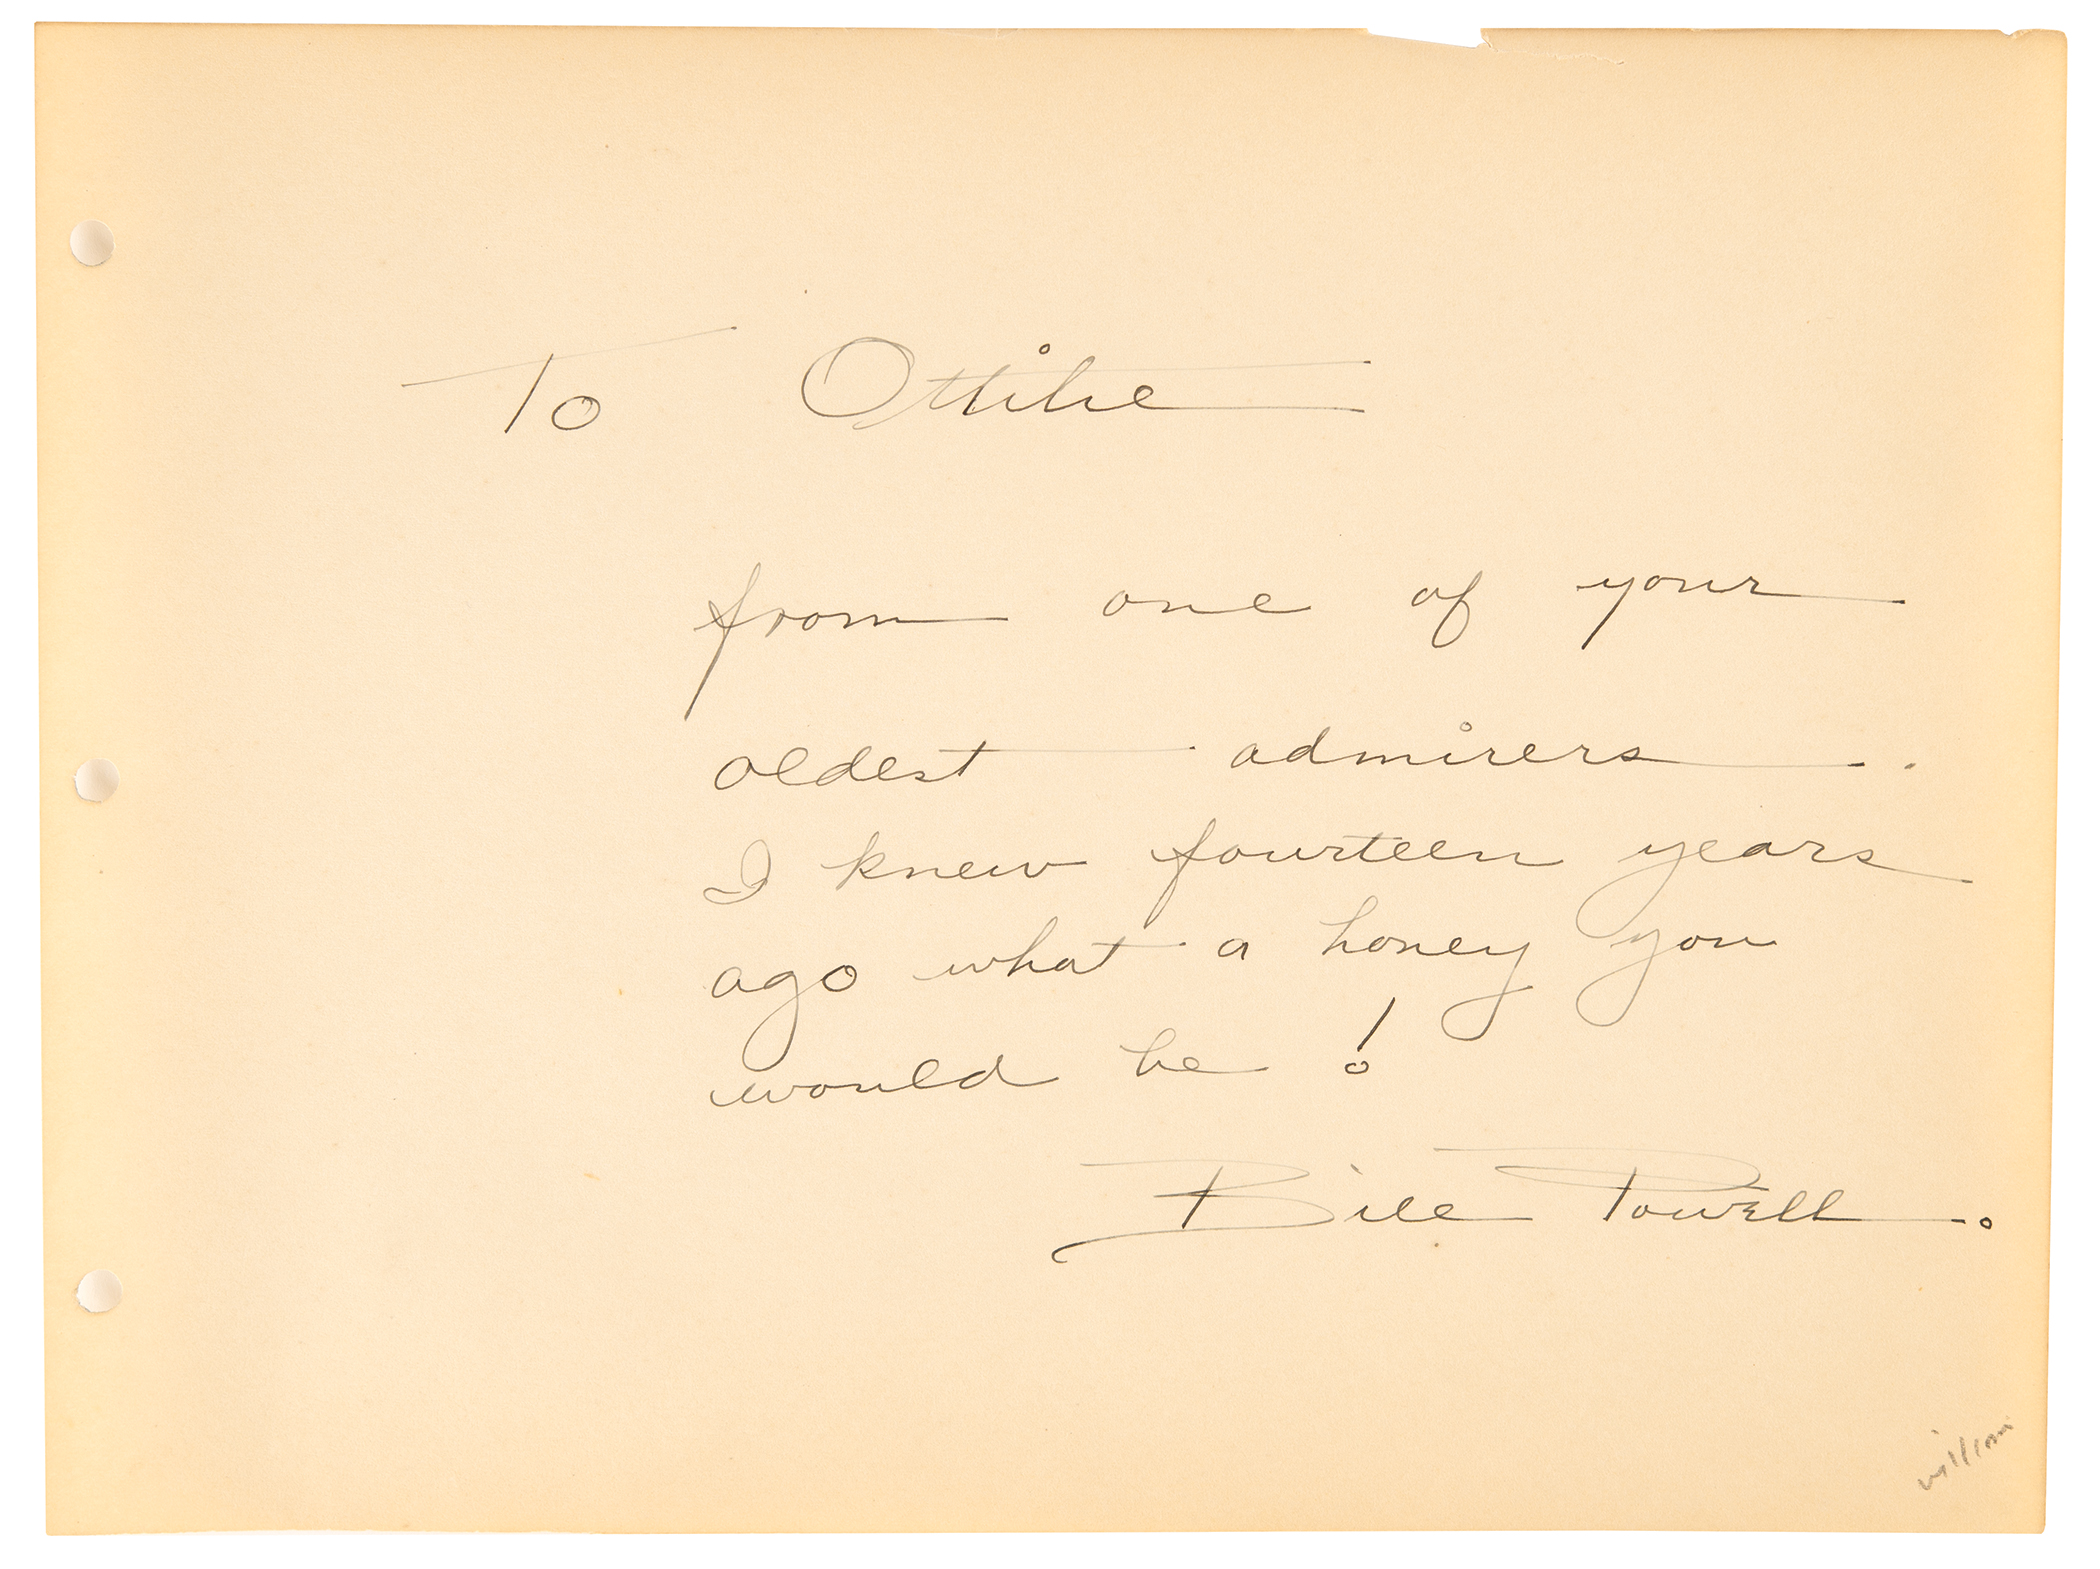 To Ottilie
from one of your
oldest admirers.
I knew fourteen years
ago what a honey you
would be!
Bill Powell.
william